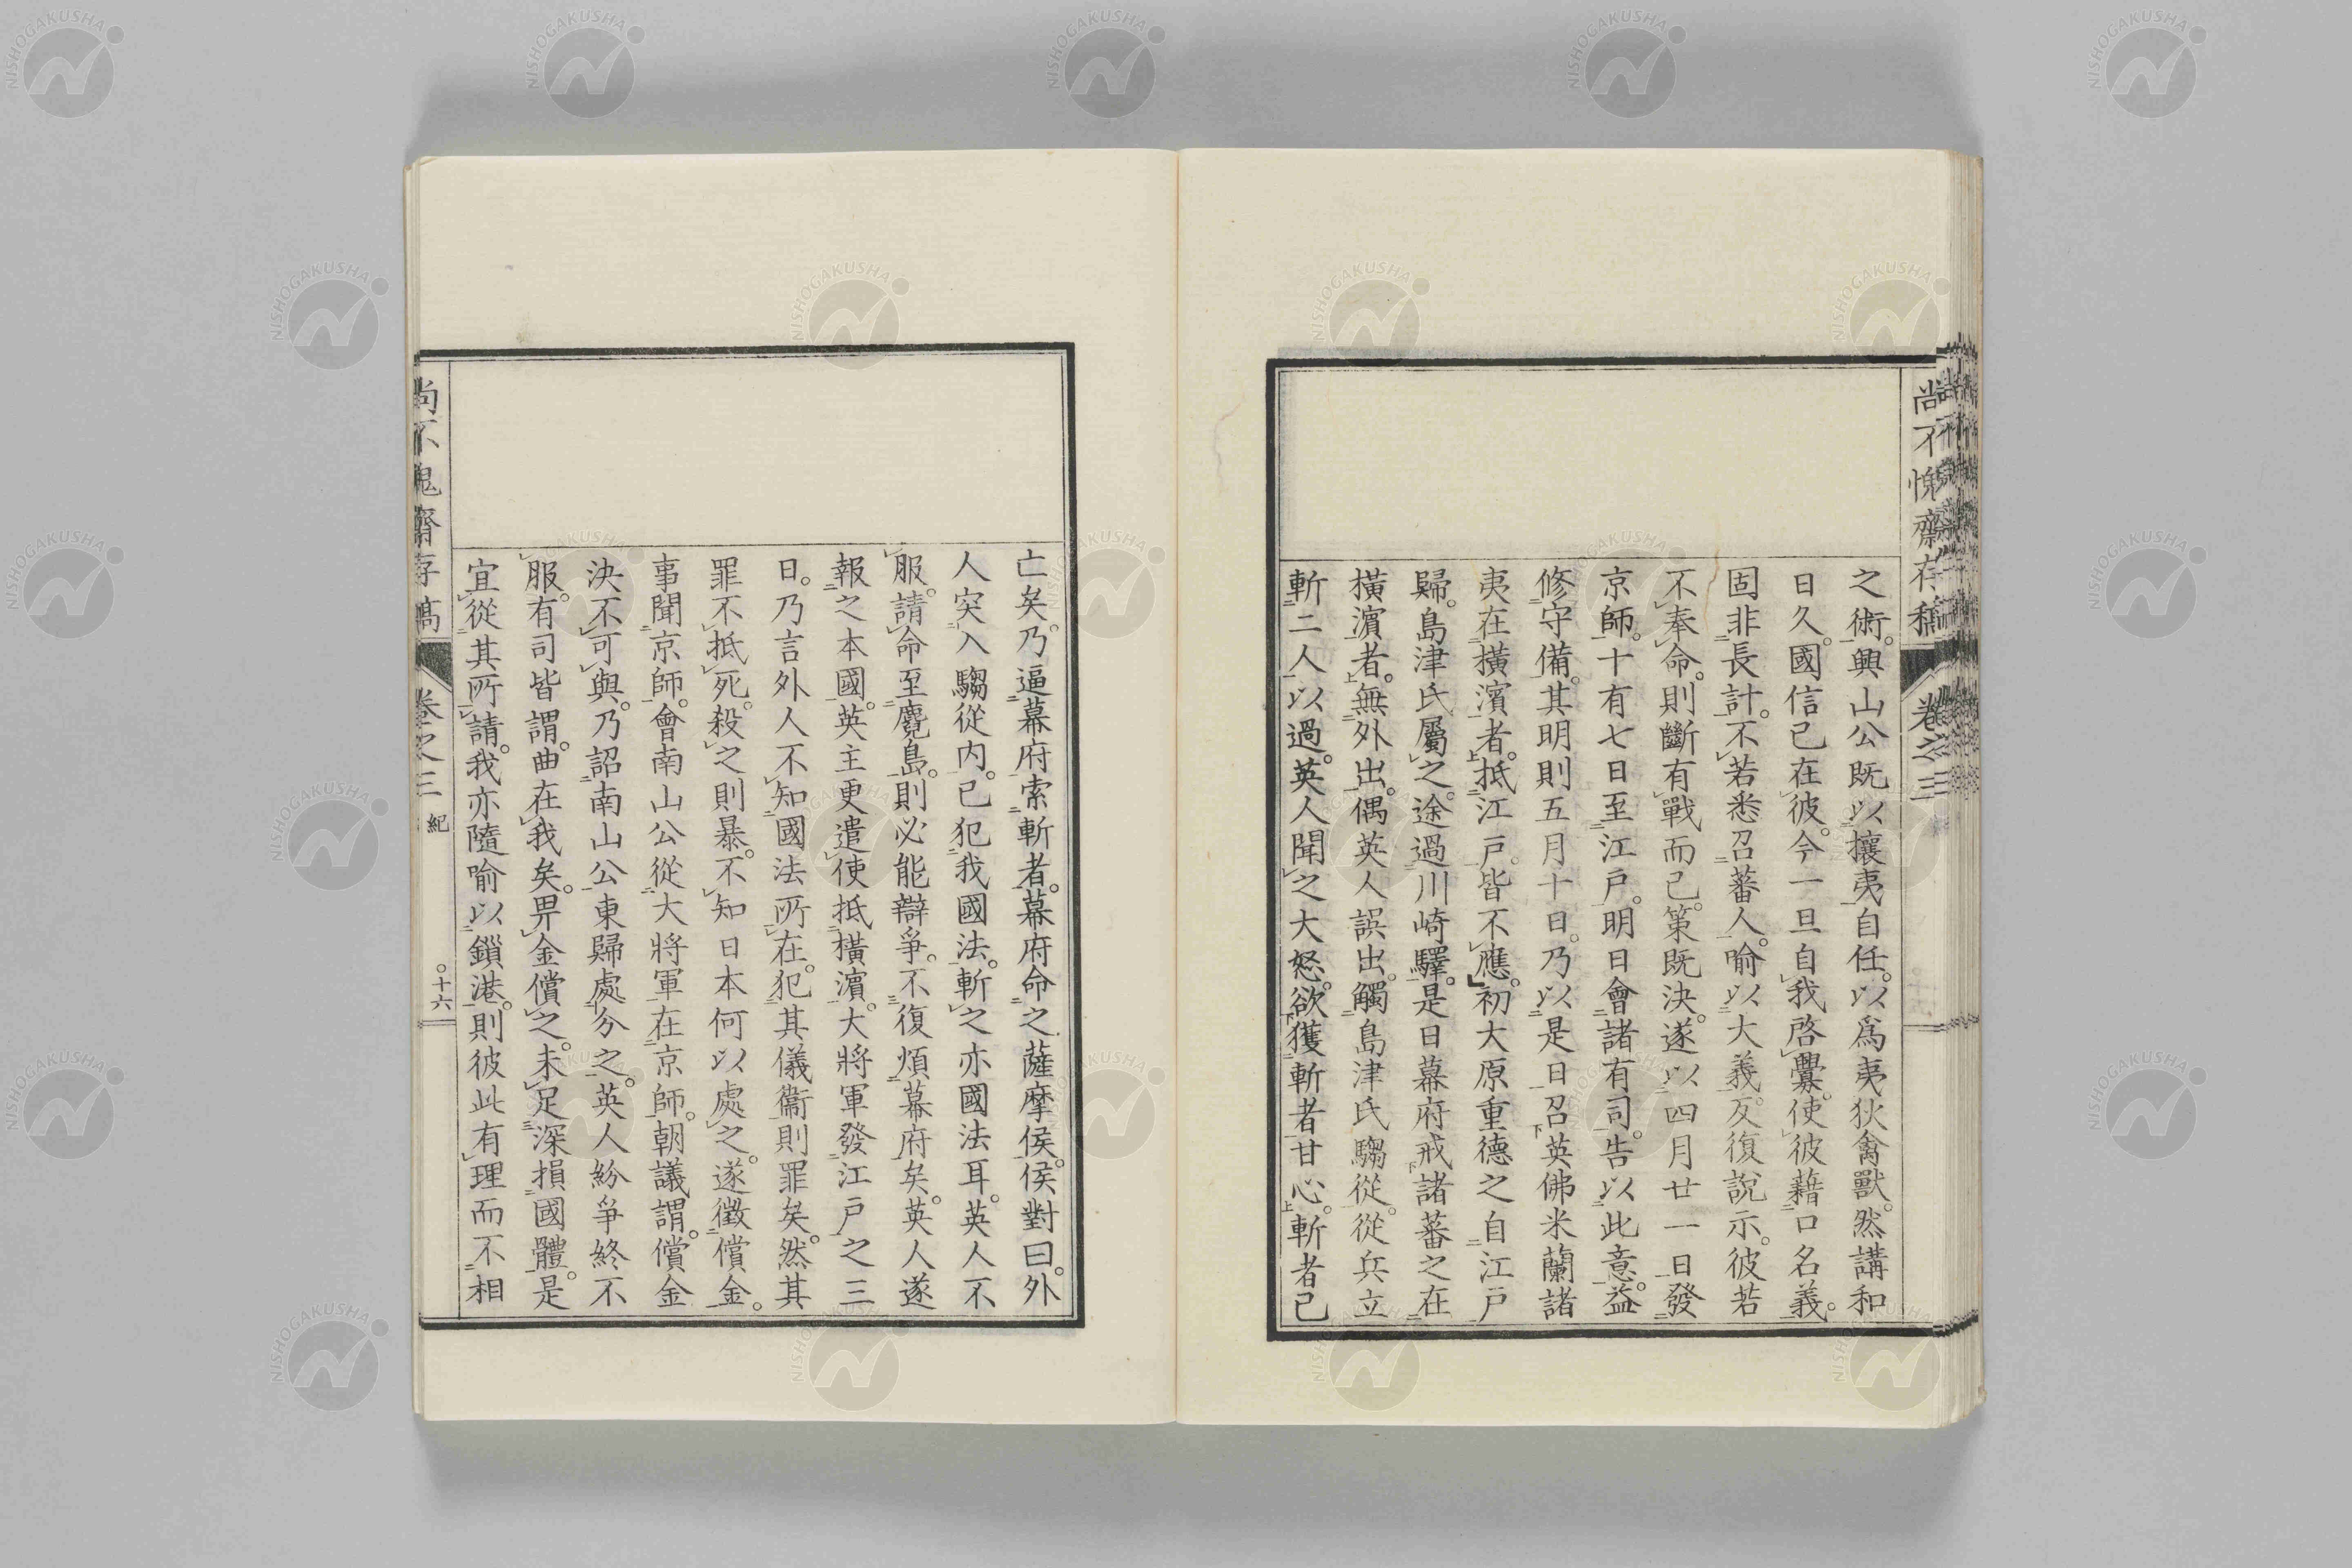 尚不愧齋存稿 卷之三
之術。興山公既以攘夷自任。以爲夷狄禽獸。然講和
日久。國信已在彼。今一旦自我啓釁。使彼藉口名義。
固非長計。不若悉召蕃人。喻以大義。反復說示。彼若
不奉命。則斷有戰而已。策既決。遂以四月廿一日發
京師。十有七日至江戶。明日會諸有司。告以此意。益
修守備。其明則五月十日。乃以是日召英佛米蘭諸
夷在橫濱者。抵江戶。皆不應。初大原重德之自江戶
歸。島津氏屬之。途過川崎驛。是日幕府戒諸蕃之在
橫濱者。無外出。偶英人誤出。觸島津氏騶從。從兵立
斬二人以過。英人聞之大怒。欲獲斬者甘心。斬者已
亡矣。乃逼幕府索斬者。幕府命之薩摩侯。侯對曰。外
人突入騶從内。已犯我國法。斬之亦國法耳。英人不
服。請命至麑島。則必能辯爭。不復煩幕府矣。英人遂
報之本國。英主更遣使抵橫濱。大將軍發江戶之三
日。乃言外人不知國法所在。犯其儀衞則罪矣。然其
罪不抵死。殺之則暴。不知日本何以處之。遂徵償金。
事聞京師。會南山公從大將軍在京師。朝議謂。償金
決不可與。乃詔南山公東歸處分之。英人紛爭終不
服。有司皆謂。曲在我矣。畀金償之。未足深損國體。是
宜從其所請。我亦隨喻以鎖港。則彼此有理而不相
尚不愧齋存稿 卷之三 紀 〇十六
NISHOGAKUSHA